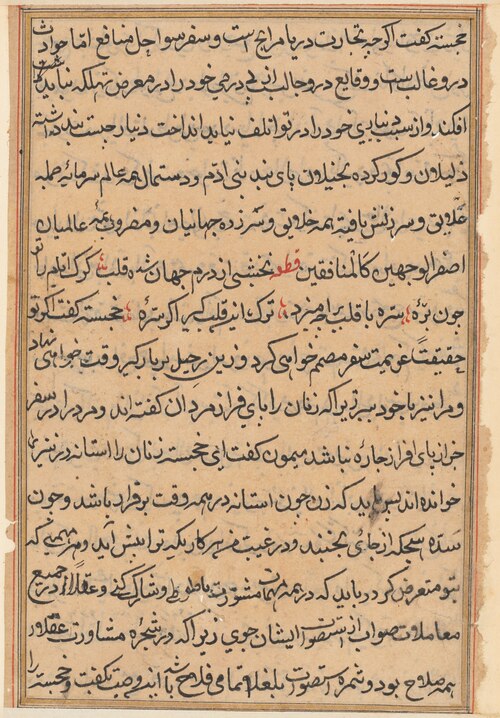 خجسته گفت اگرچه تجارت دریا مرابح است و سفر سواحل منافع اما حوادث
درو غالب است و وقایع درو جالب از پی درمی خود را در معرض تهلکه نباید
افکند و از سبب دیناری خود را در تو تلف نباید انداخت دینار چیست بند
ذلیلان و کور کرده بخیلان پای بند بنی آدم و دستمال همه عالم سرمایه جمله
علایق و سرزنش یافته همه خلایق و سرزده جهانیان و مضروب همه عالمیان
اصفر الوجهین کالمنافقین قطعه نخشبی از درم جهان شده قلب کرک
چون بره سره با قلب برآمیزد ترک این قلب گیر اگر سره خجسته گفت اگر تو
حقیقتا عزیمت سفر مصمم خواهی کرد و زین رحیل بر بارگیر وقت خواهی نهاد
و مرا نیز با خود ببر زیرا که زنان را پای افراز مردان گفته اند و مرد را در سفر
خز از پای افراز چاره نباشد میمون گفت ای خجسته زنان را آستانه در نیز
خوانده اند پس باید که زن چون آستانه در همه وقت برقرار باشد و چون
سده از جای نجنبد و در غیبت من هر کاری که ترا پیش آید و هر مهمی که
بتو متعرض گردد باید که در همه مهمات مشورت با طوطی و شارک کنی و عقلا در جمیع
معاملات صواب از استصواب ایشان جوی زیرا که در شجره مشاورت عقلا
همه صلاح بود و ثمره استصواب بلغا تمامی فلاح باشد این وصیت بگفت و خجسته را